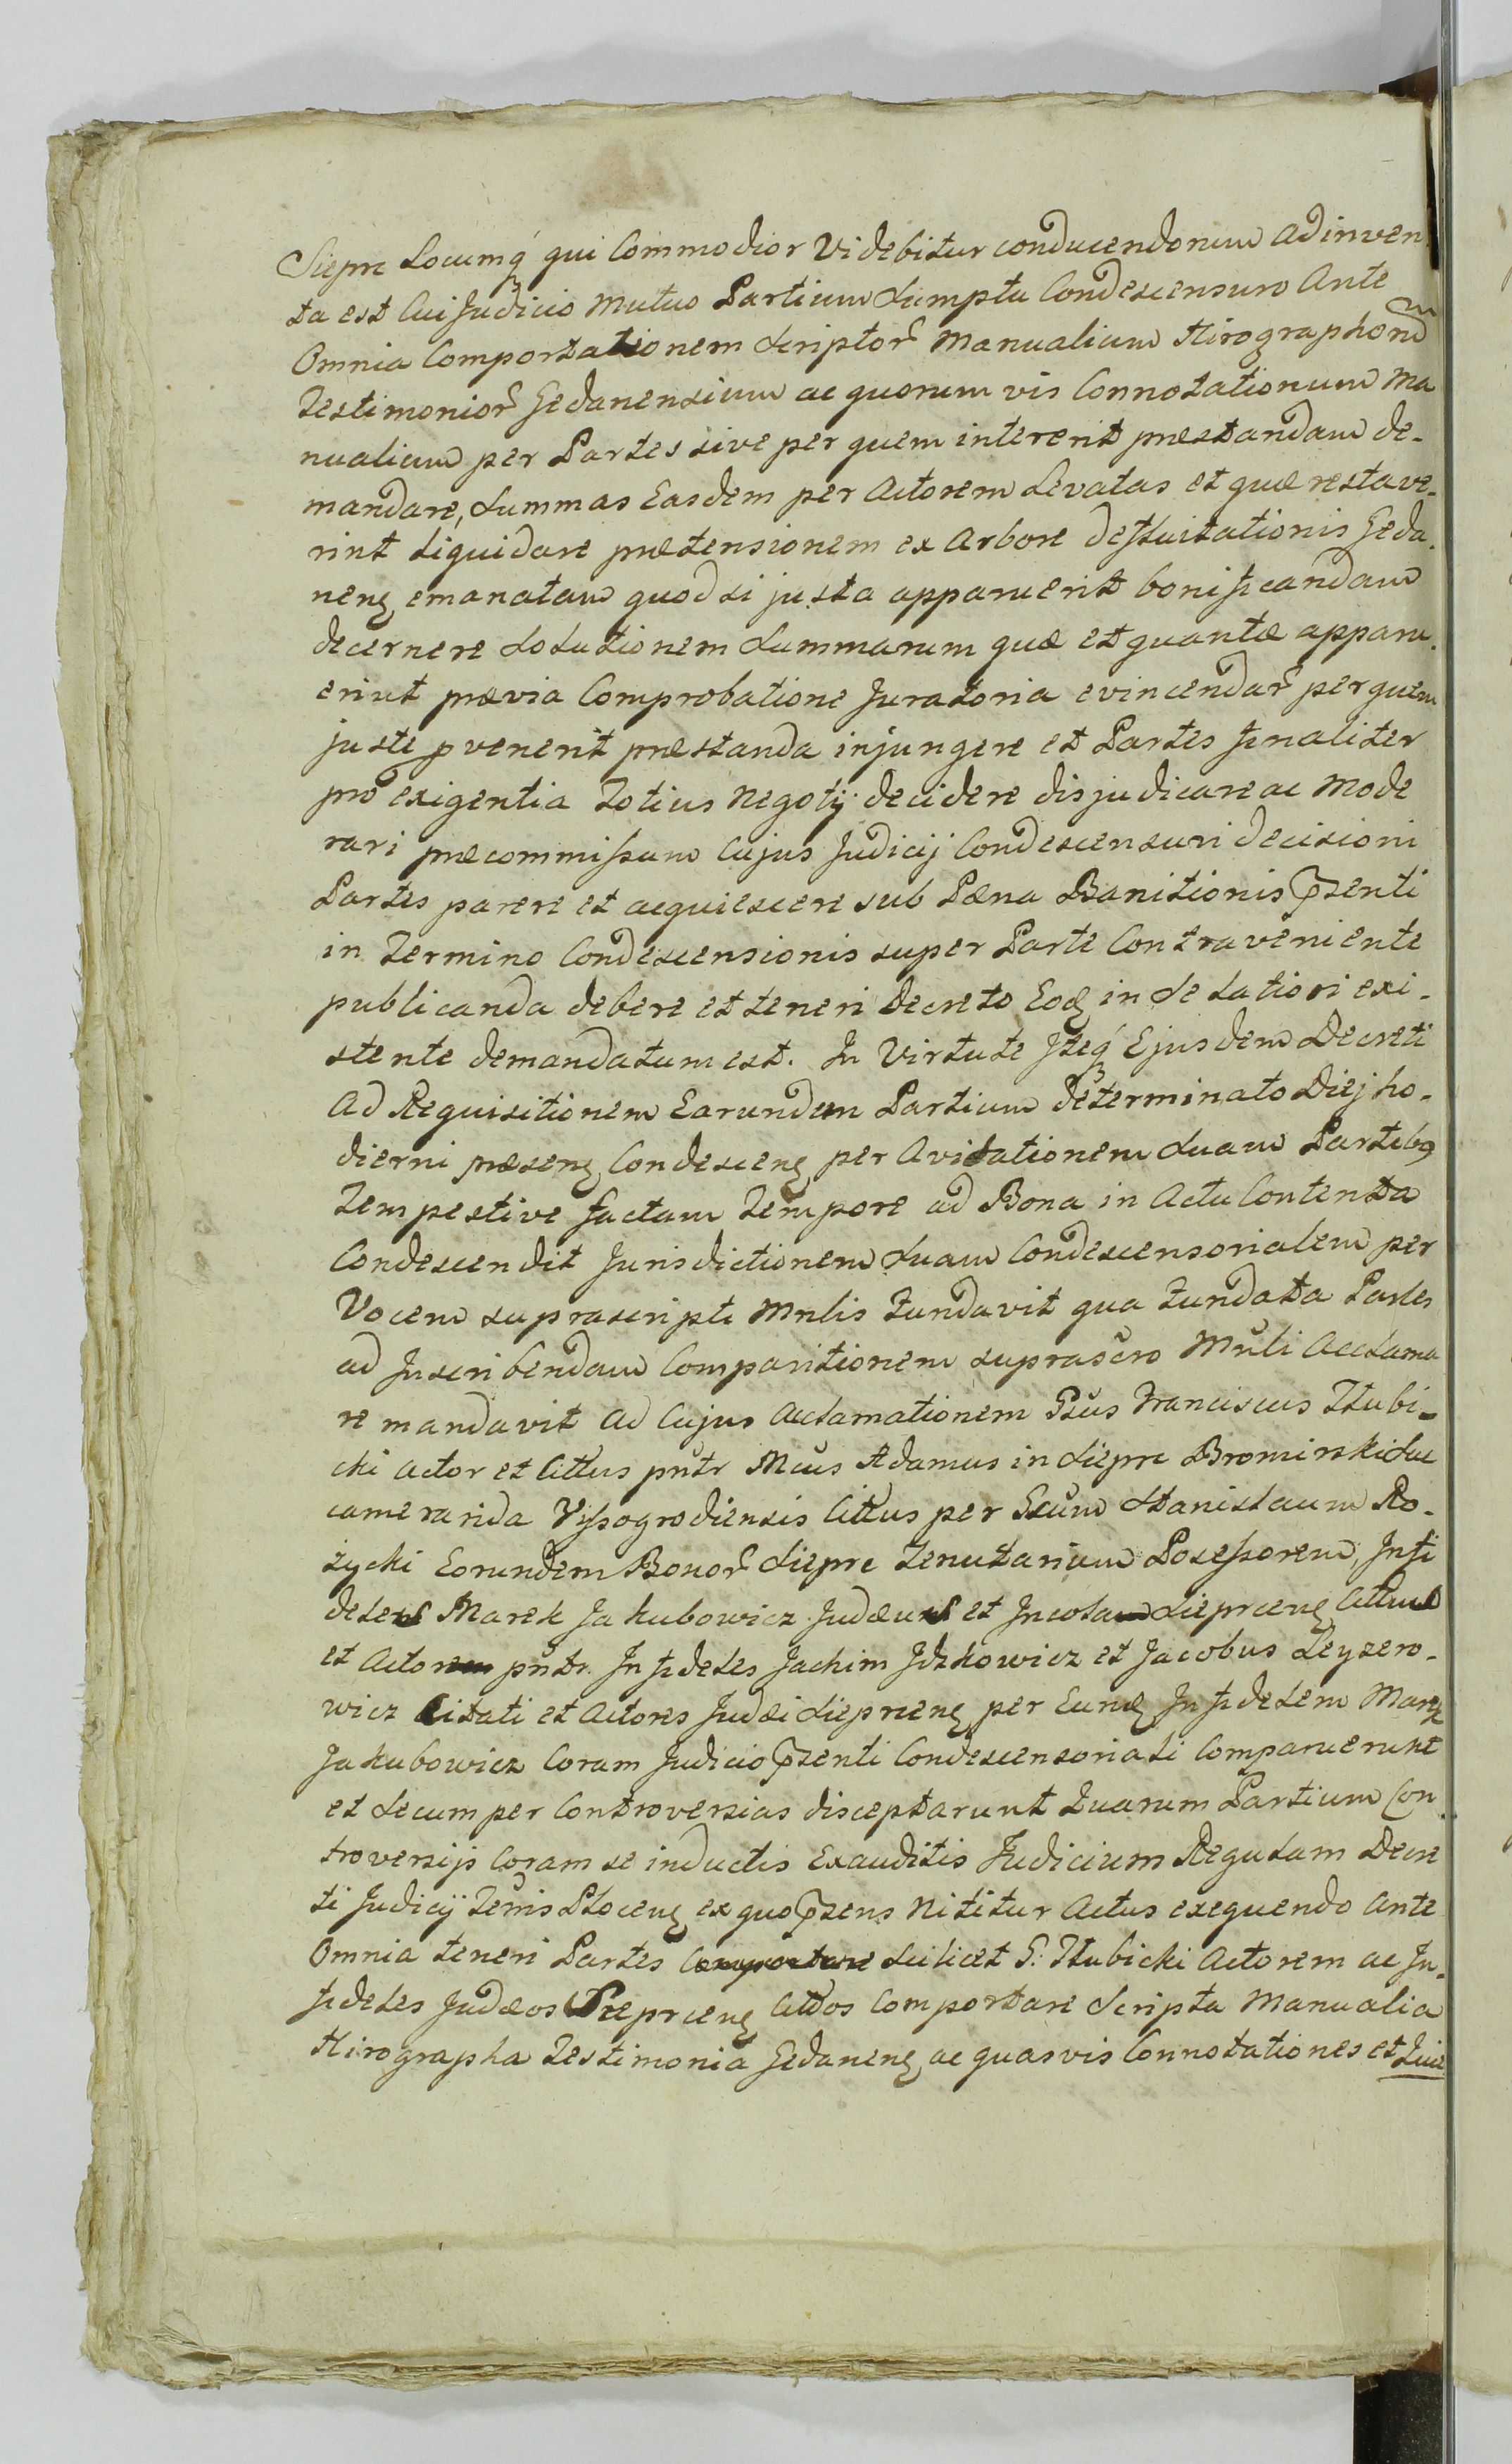 Siepre Locumq́ qui Commodior Videbitur conducendorum adinven-
ta est Cui Judicio Mutuo Partium Sumptu Condescensuro Ante
Omnia Comportationem Scriptor̃ Manualium Hirographorũ
Testimonior̃ Gedanensium ac quorum vis Connotationum Ma
nualium per Partes sive per quem intererit præstandam de-
mandare, Summas Easdem per Actorem Levatas et quæ restave-
rint liquidare prætensionem ex Arbore defluitationis Geda-
nenę emanatam quod si justa apparuerit bonificandam
decernere Solutionem Summarum quæ et quantæ apparu-
erint prævia Comprobatione Juratoria evincendar̃ per quem
juste pvenerit præstanda injungere et Partes finaliter
pro exigentia Totius Negotij decidere disjudicare ac Mode
rari præcommissum Cujus Judicij Condescensuri decisioni
Partes parere et acquiescere sub Pæna Banitionis p̃senti
in Termino Condescensionis super Parte Contraveniente
publicanda debere et teneri Decreto Eodę in se latiori exi-
stente demandatum est. In Virtute Itaq́ Ejusdem Decreti
Ad Requisitionem Earundem Partium determinato Diej ho-
dierni præsenę Condescenę per Avisationem Suam Partibq
Tempestive factam Tempore ad Bona in Actu Contenta
Condescendit Jurisdictionem Suam Condescensorialem per
Vocem suprascripti Mnlis Fundavit qua Fundata Partes
ad Inscribendam Comparitionem suprascro Mnli Acclama
re mandavit Ad Cujus Acclamationem Gsus Franciscus Zlubi-
cki Actor et Cittus pntr Mcus Adamus in Siepre Bromirski Suc
camerarida Vyssogrodiensis Cittus per Gsum Stanislaum Ro-
życki Eorundem Bonor̃ Siepre Tenutarium Possessorem, Infi
deles Marek Jakubowicz Judæus et Incola Sieprcenę Cittus
et Actor pntr. Infideles Jachim Jdzkowicz et Jacobus Leyzero-
wicz Citati et Actores Judæi Sieprcenę per Eundę Infidelem Marek
Jakubowicz Coram Judicio p̃senti Condescensoriali Comparuerunt
et Secum per Controversias disceptarunt Quarum Partium Con-
troversijs Coram se inductis Exauditis Judicium Regulam Decre
ti Judicij Terris Plocenę ex quo p̃sens Nititur Actus exequendo Ante
Omnia teneri Partes Comportare Scilicet G: Zlubicki Actorem ac In-
fideles Judæos Sieprcenę Cittos Comportare Scripta Manualia
Hirographa Testimonia Gedanenę ac quasvis Connotationes et